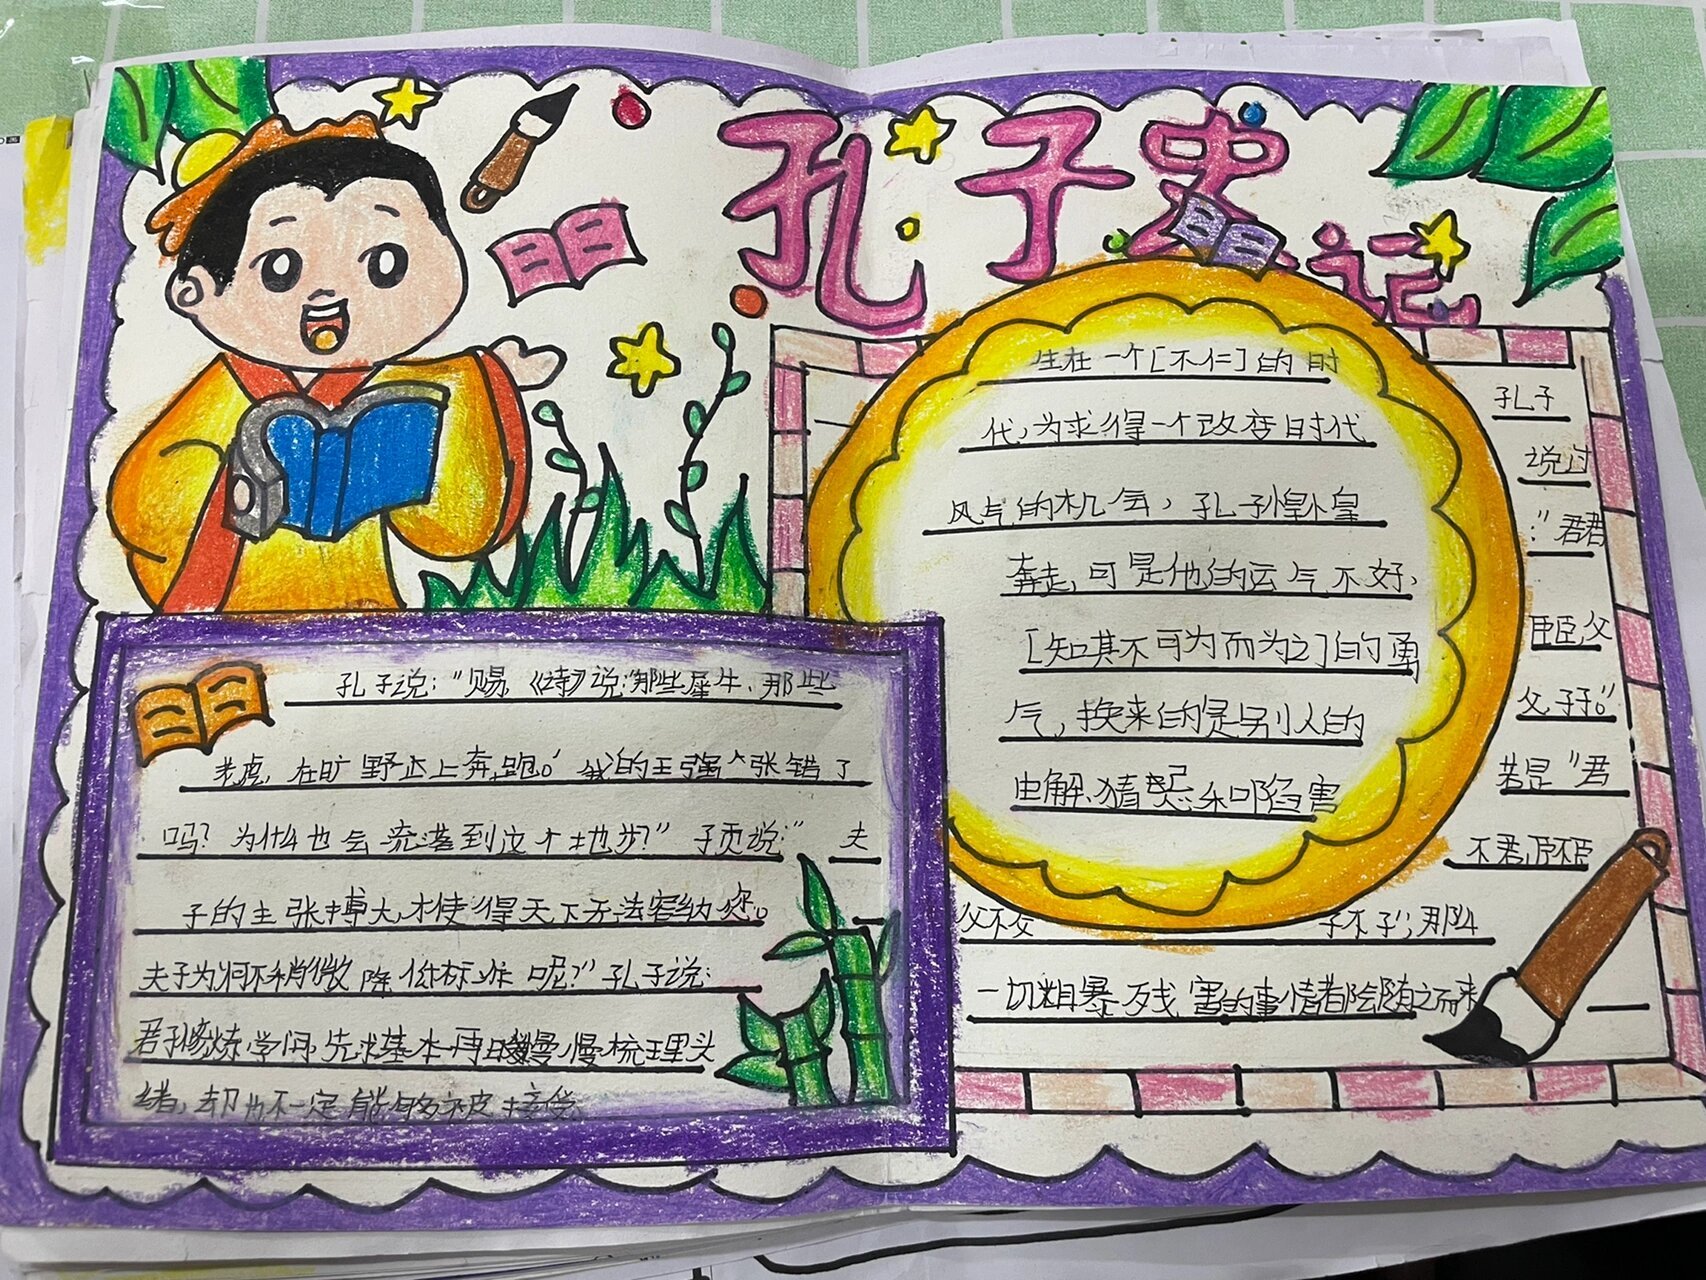 孔子史记
孔子说："赐《诗》说"那些犀牛、那些
老虎，在旷野上奔跑。"我的主张错了
吗？为什么也会流落到这个地步？"子贡说："夫
子的主张博大，使得天下无法容纳您。
夫子为何不稍微降低标准呢？"孔子说：
君子修炼学问，先求基本再慢慢梳理头
绪，却也不一定能够被接受
生在一个[不仁]的时
代，为求得一个改变时代
风气的机会，孔子惶惶
奔走，可是他的运气不好，
[知其不可为而为之]的勇
气，换来的是别人的
曲解、猜忌和陷害
孔子
说过
："君君
臣臣，父
父子子。"
若是"君
不君，臣不臣
父不父 子不子"；那么
一切粗暴残害的事情都会随之而来